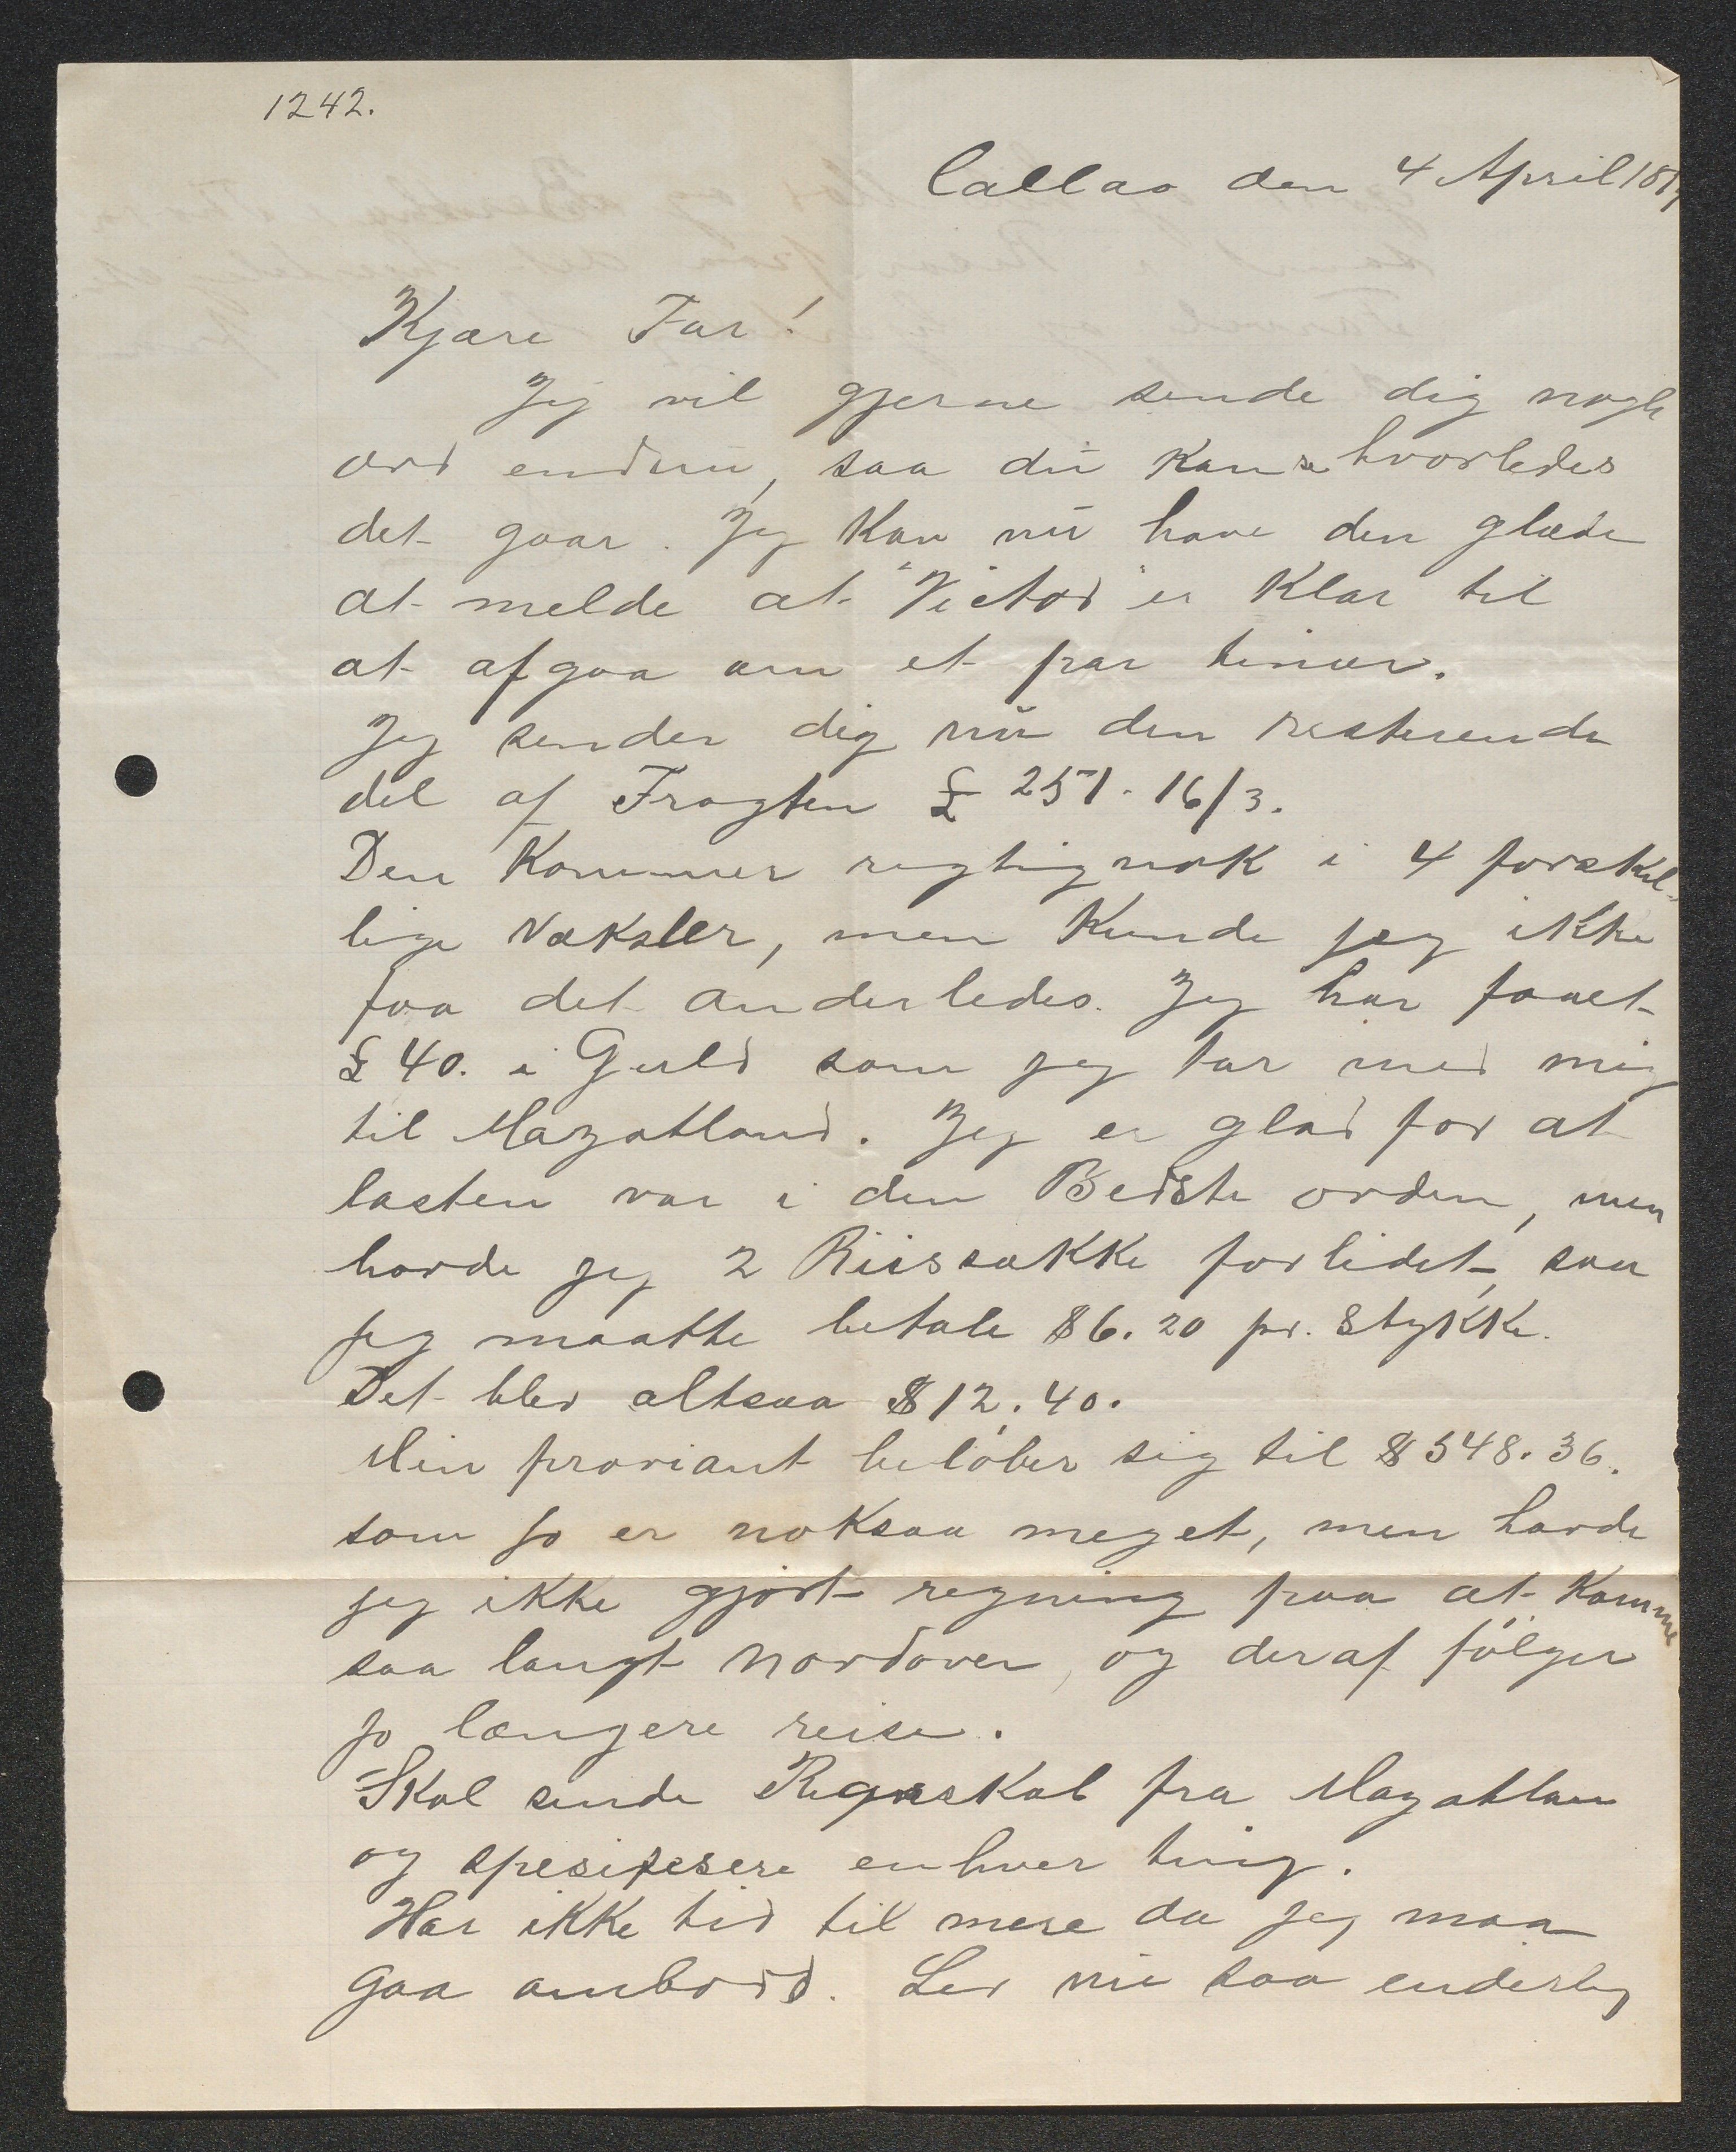 1242.
Callao den 4 April 18
Kjære Far!
Jeg vil gjerne sende dig nogle
ord endnu, saa du kan se hvorledes
det gaar. Jeg kan nu have den glæde
at melde at "Victor" er klar til
at afgaa om et par timer.
Jeg sender dig nu den resterende
del af Fragten £ 251. 16/3.
Den kommer rigtignok i 4 forskjel-
lige Væksler, men kunde jeg ikke
faa det anderledes. Jeg har faaet
£ 40. i Guld som jeg tar med mig
til Mazatland. Jeg er glad for at
lasten var i den Bedste orden, men
havde jeg 2 Riissække forlidet, saa
jeg maatte betale $6.20 pr. Stykke.
Det blev altsaa $12.40.
Min proviant beløber sig til $548.36.
som jo er noksaa meget, men havde
jeg ikke gjørt regning paa at komme
saa langt nordover, og deraf følger
jo længere reise.
Skal sende Regnskab fra Mazatlan
og spesifesere enhver ting.
Har ikke tid til mere da jeg maa
gaa ombord. Lev nu saa enderlig